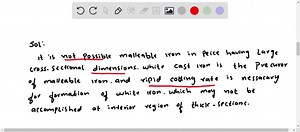 Sol:
it is not possible malleable iron in Peice having large
cross-sectional dimensions. white cast iron is the Precuror
of malleable iron. and ripid cooling rate is nessacary
for formation of white iron. which may not be
accomplished at interior region of thick-sections.